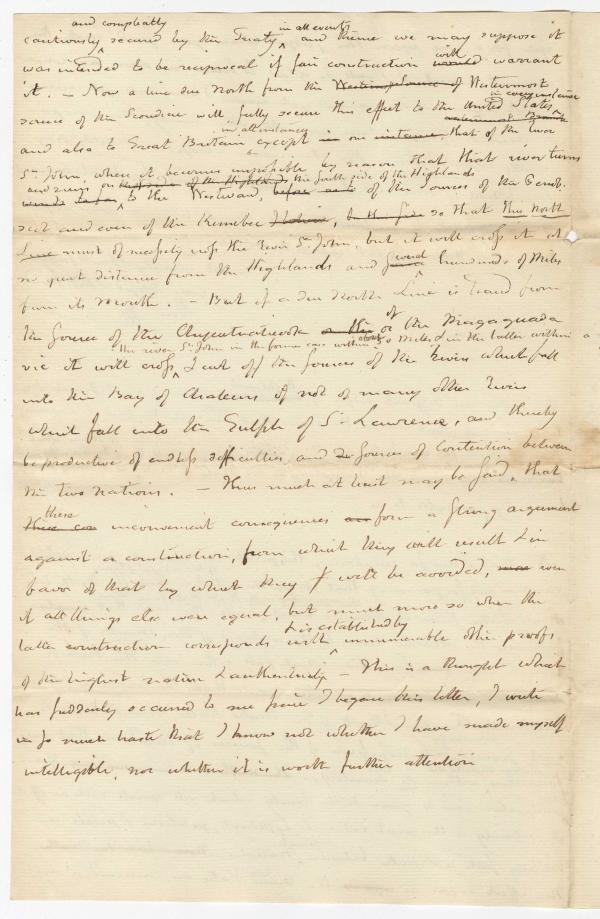 and compleatly
in all events
cautiously secured by the Treaty and thence we may suppose it
was intended to be reciprocal if fair construction with would warrant
it. — Now a line due North from the Westernmost Source of Westernmost
in every instance
source of the Scoudiac will fully secure this effect to the United States
in all instances
and also to Great Britain except in one instance, that of the river
St. John, where it becomes impossible by reason that that river turns
and runs on the South side of the Highlands
to the Westward, of the Sources of the Penob-
scot and even of the Kennebec, so that this North
Line must of necessity cross the river St. John, but it will cross it at
no great distance from the Highlands and several hundreds of Miles
from its mouth. — But if a due North Line is traced from
the Source of the Cheputnatecook or the or of the Magaguada
the river St. John in the former case within about Miles & in the latter within a
vic it will cross & cut off the Sources of the rivers which fall
into the Bay of Chaleurs if not of many other rivers
which fall into the Gulph of St. Lawrence, and thereby
be productive of endless difficulties and Sources of Contention between
the two nations. — Thus much at least may be said, that
these
inconvenient consequences form a strong argument
against a construction, from which they will result & in
favor of that by which they will be avoided, even
if all things else were equal, but much more so when the
& is established by
latter construction corresponds with innumerable other proofs
of the highest nature & authenticity — This is a thought which
has suddenly occurred to me since I began this letter, I write
in so much haste that I know not whether I have made myself
intelligible, nor whether it is worth further attention